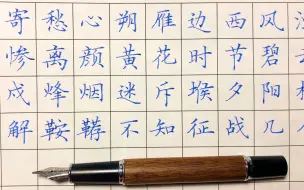 寄愁心朔雁边西风
惨离颜黄花时节碧云
戍烽烟迷斥堠夕阳村
解鞍鞯不知征战几